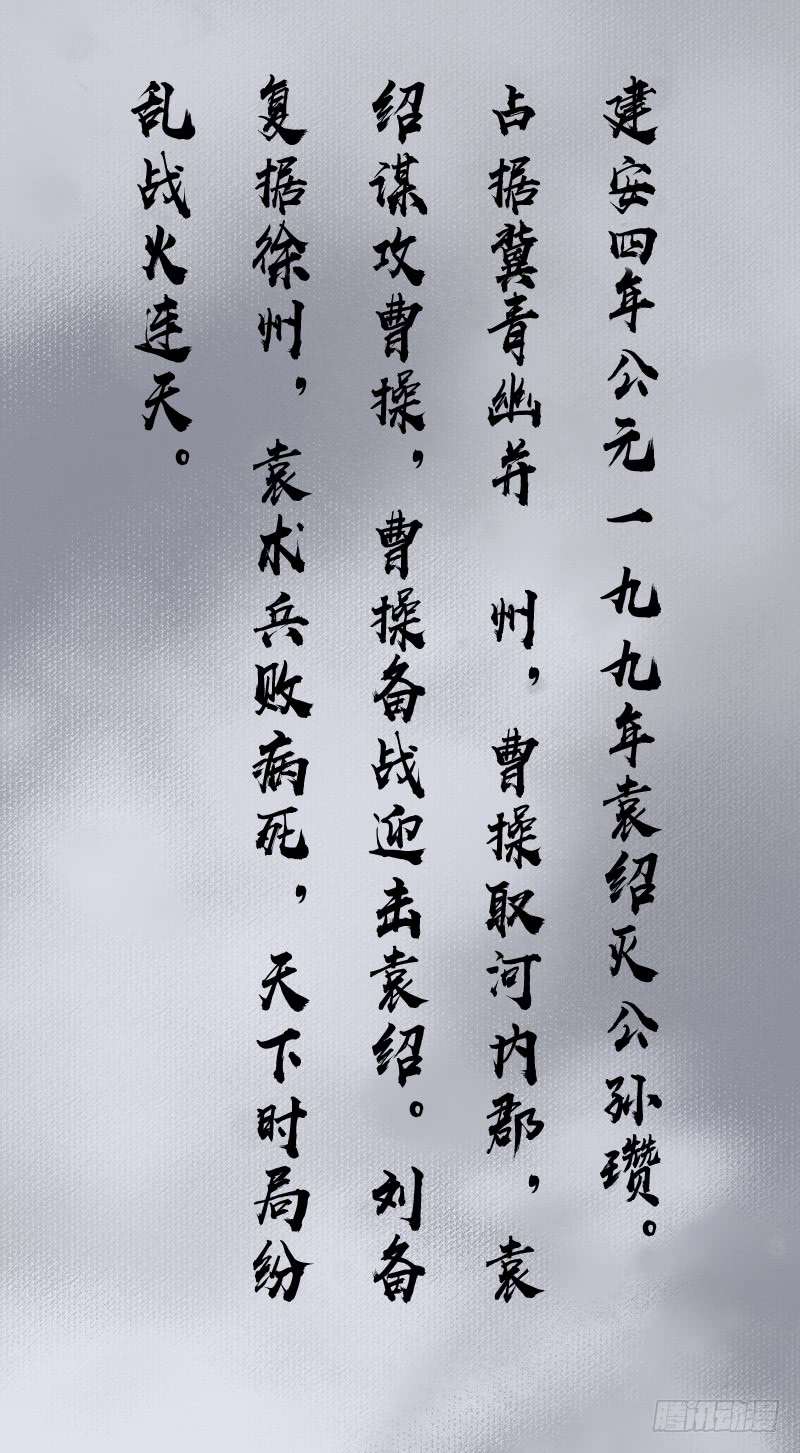 建安四年公元一九九年袁绍灭公孙瓒。
占据冀青幽并 州，曹操取河内郡，袁
绍谋攻曹操，曹操备战迎击袁绍。刘备
复据徐州，袁术兵败病死，天下时局纷
乱战火连天。
腾讯动漫